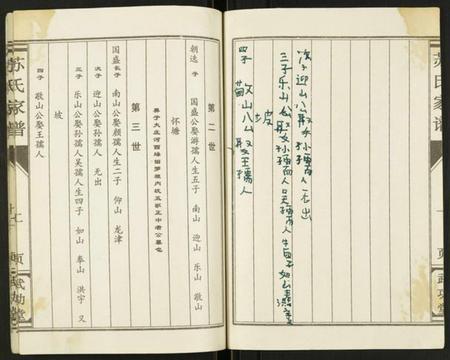 苏氏家谱
页
武功堂
次子 迎山公娶孙孺人 无出
三子 乐山公娶孙孺人吴孺人生四子 如山
坡
四子 敬山公娶王孺人
第二世
朝选 子 国盛公娶游孺人生五子 南山 迎山 乐山 敬山
怀塘
第三世
国盛长子 南山公娶颜孺人生二子 仰山 龙津
次子 迎山公娶孙孺人 无出
三子 乐山公娶孙孺人吴孺人生四子 如山 泰山 洪宇 又
坡
四子 敬山公娶王孺人
苏氏家谱
十七
页
武功堂